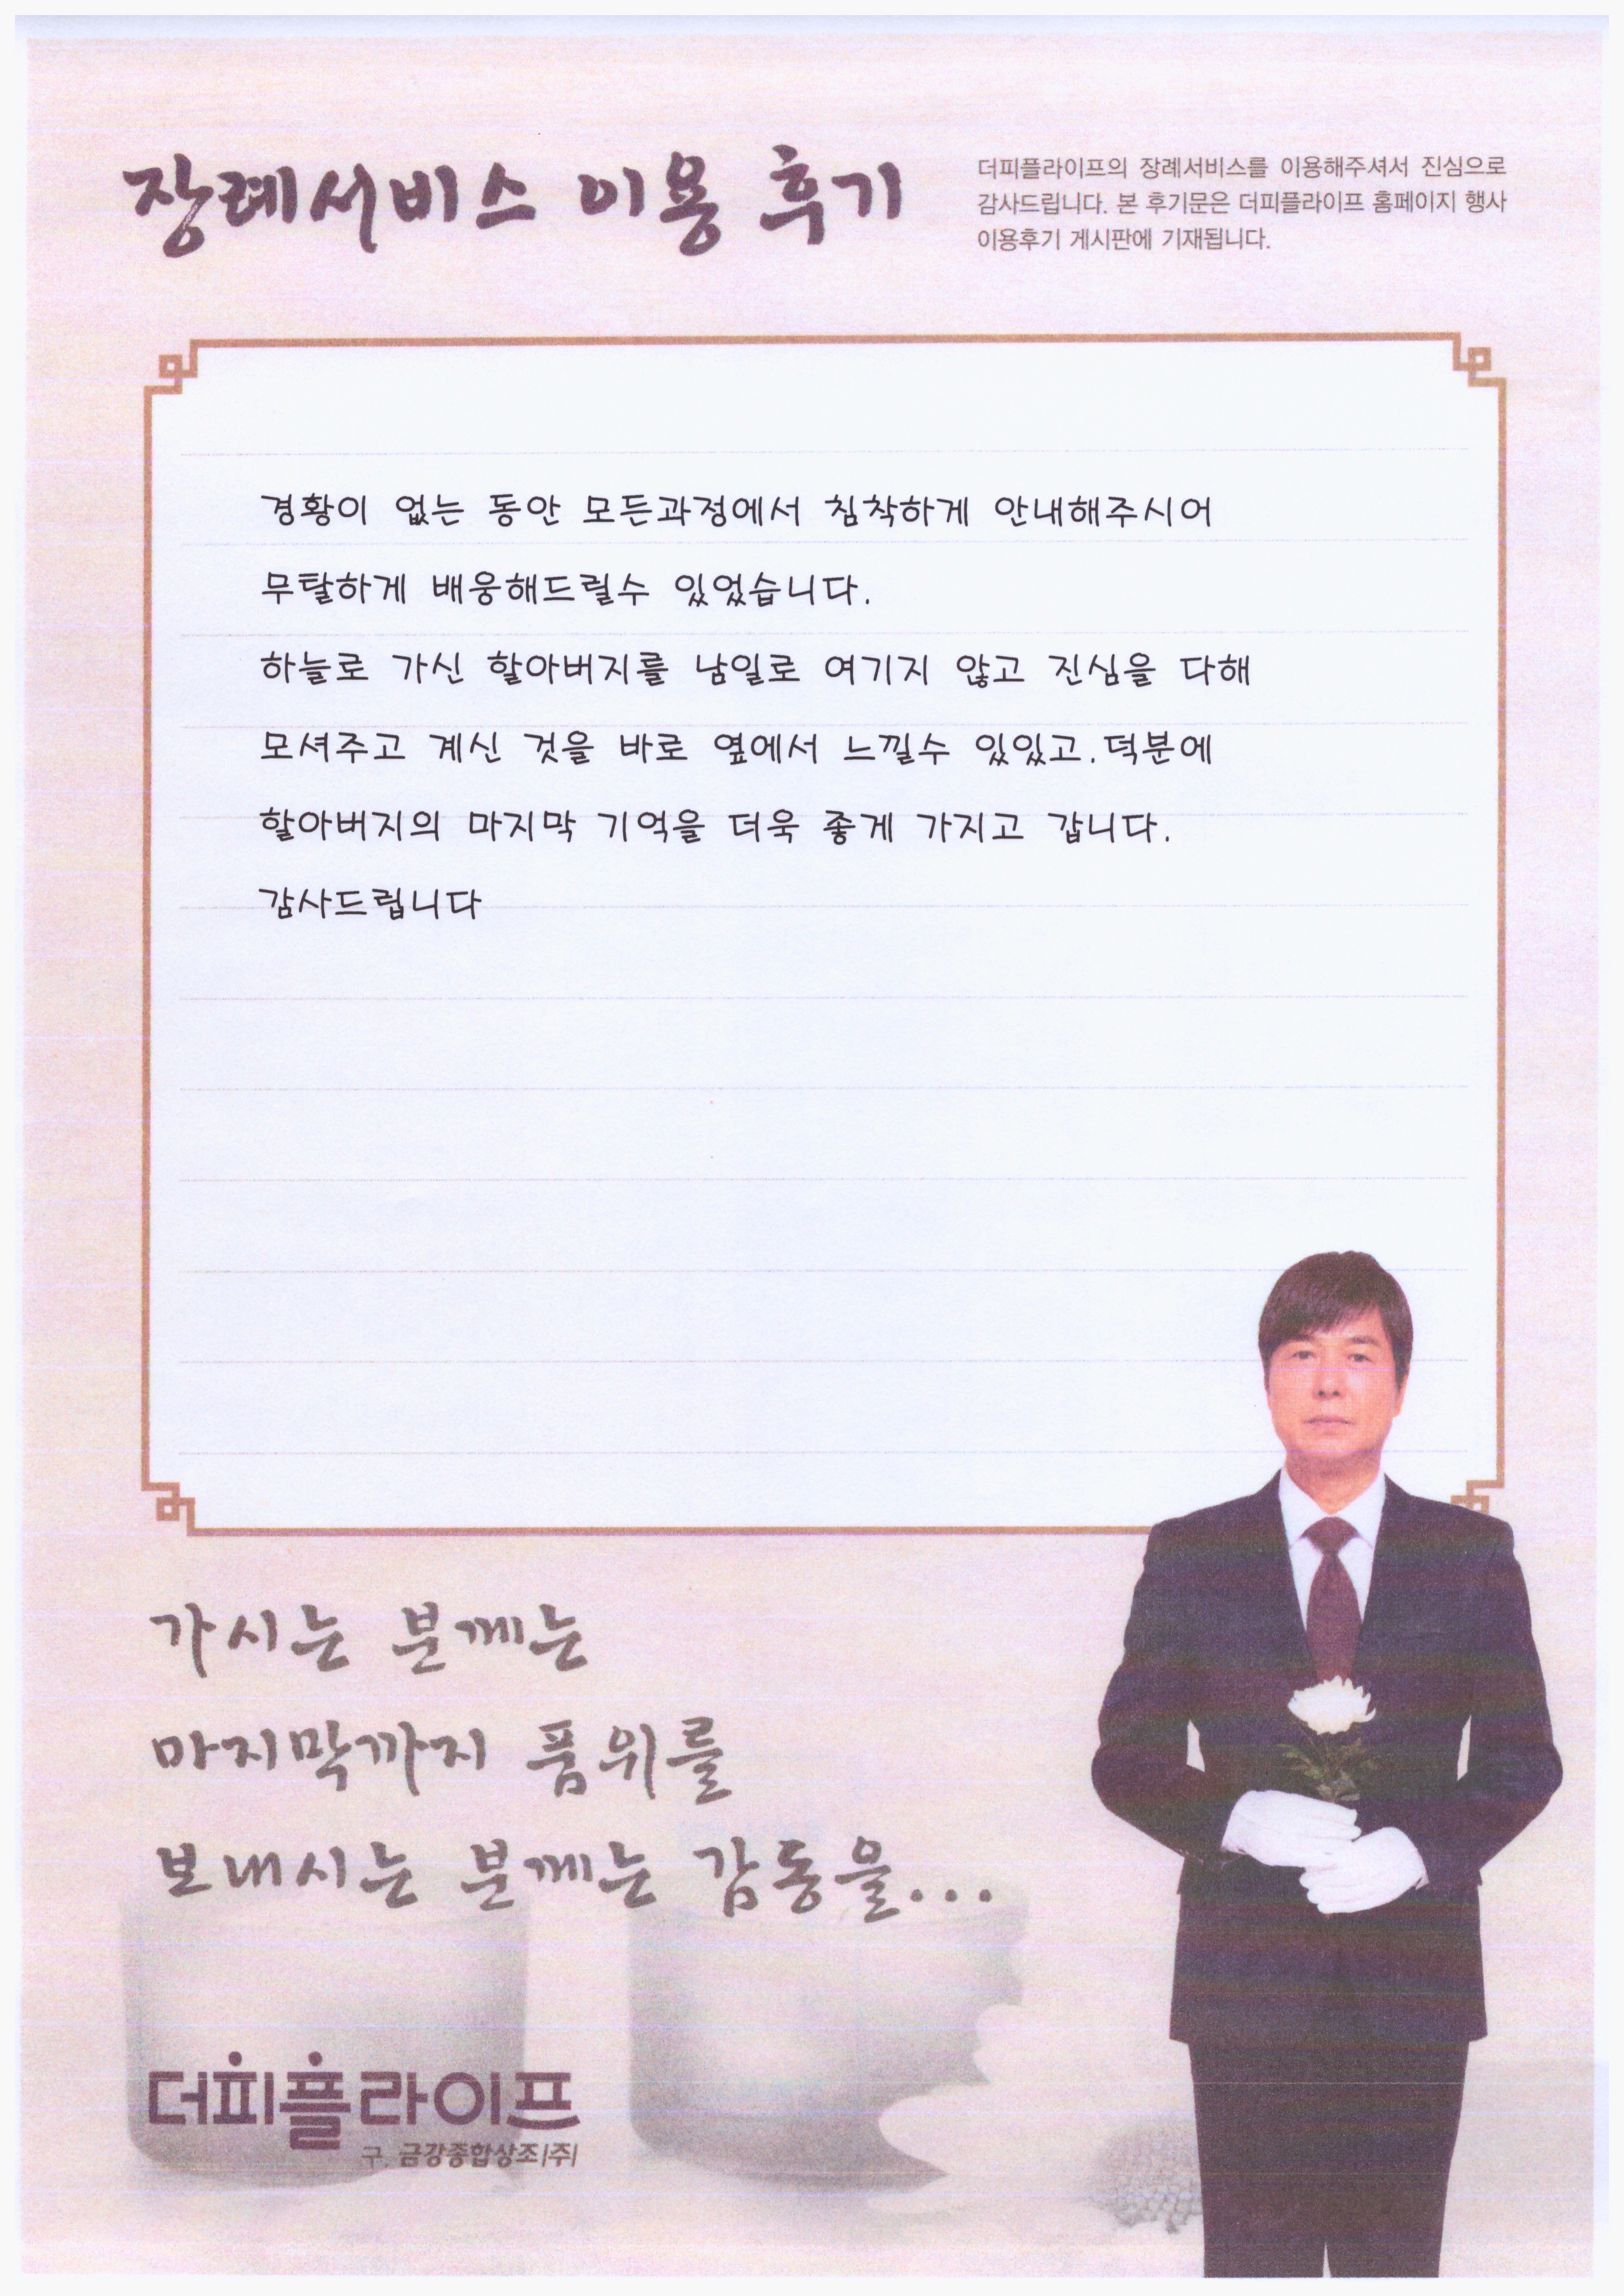 장례서비스 이용 후기
더피플라이프의 장례서비스를 이용해주셔서 진심으로
감사드립니다. 본 후기문은 더피플라이프 홈페이지 행사
이용후기 게시판에 기재됩니다.
경황이 없는 동안 모든과정에서 침착하게 안내해주시어
무탈하게 배웅해드릴수 있었습니다.
하늘로 가신 할아버지를 남일로 여기지 않고 진심을 다해
모셔주고 계신 것을 바로 옆에서 느낄수 있있고.덕분에
할아버지의 마지막 기억을 더욱 좋게 가지고 갑니다.
감사드립니다
가시는 분께는
마지막까지 품위를
보내시는 분께는 감동을...
더피플라이프
구. 금강종합상조(주)